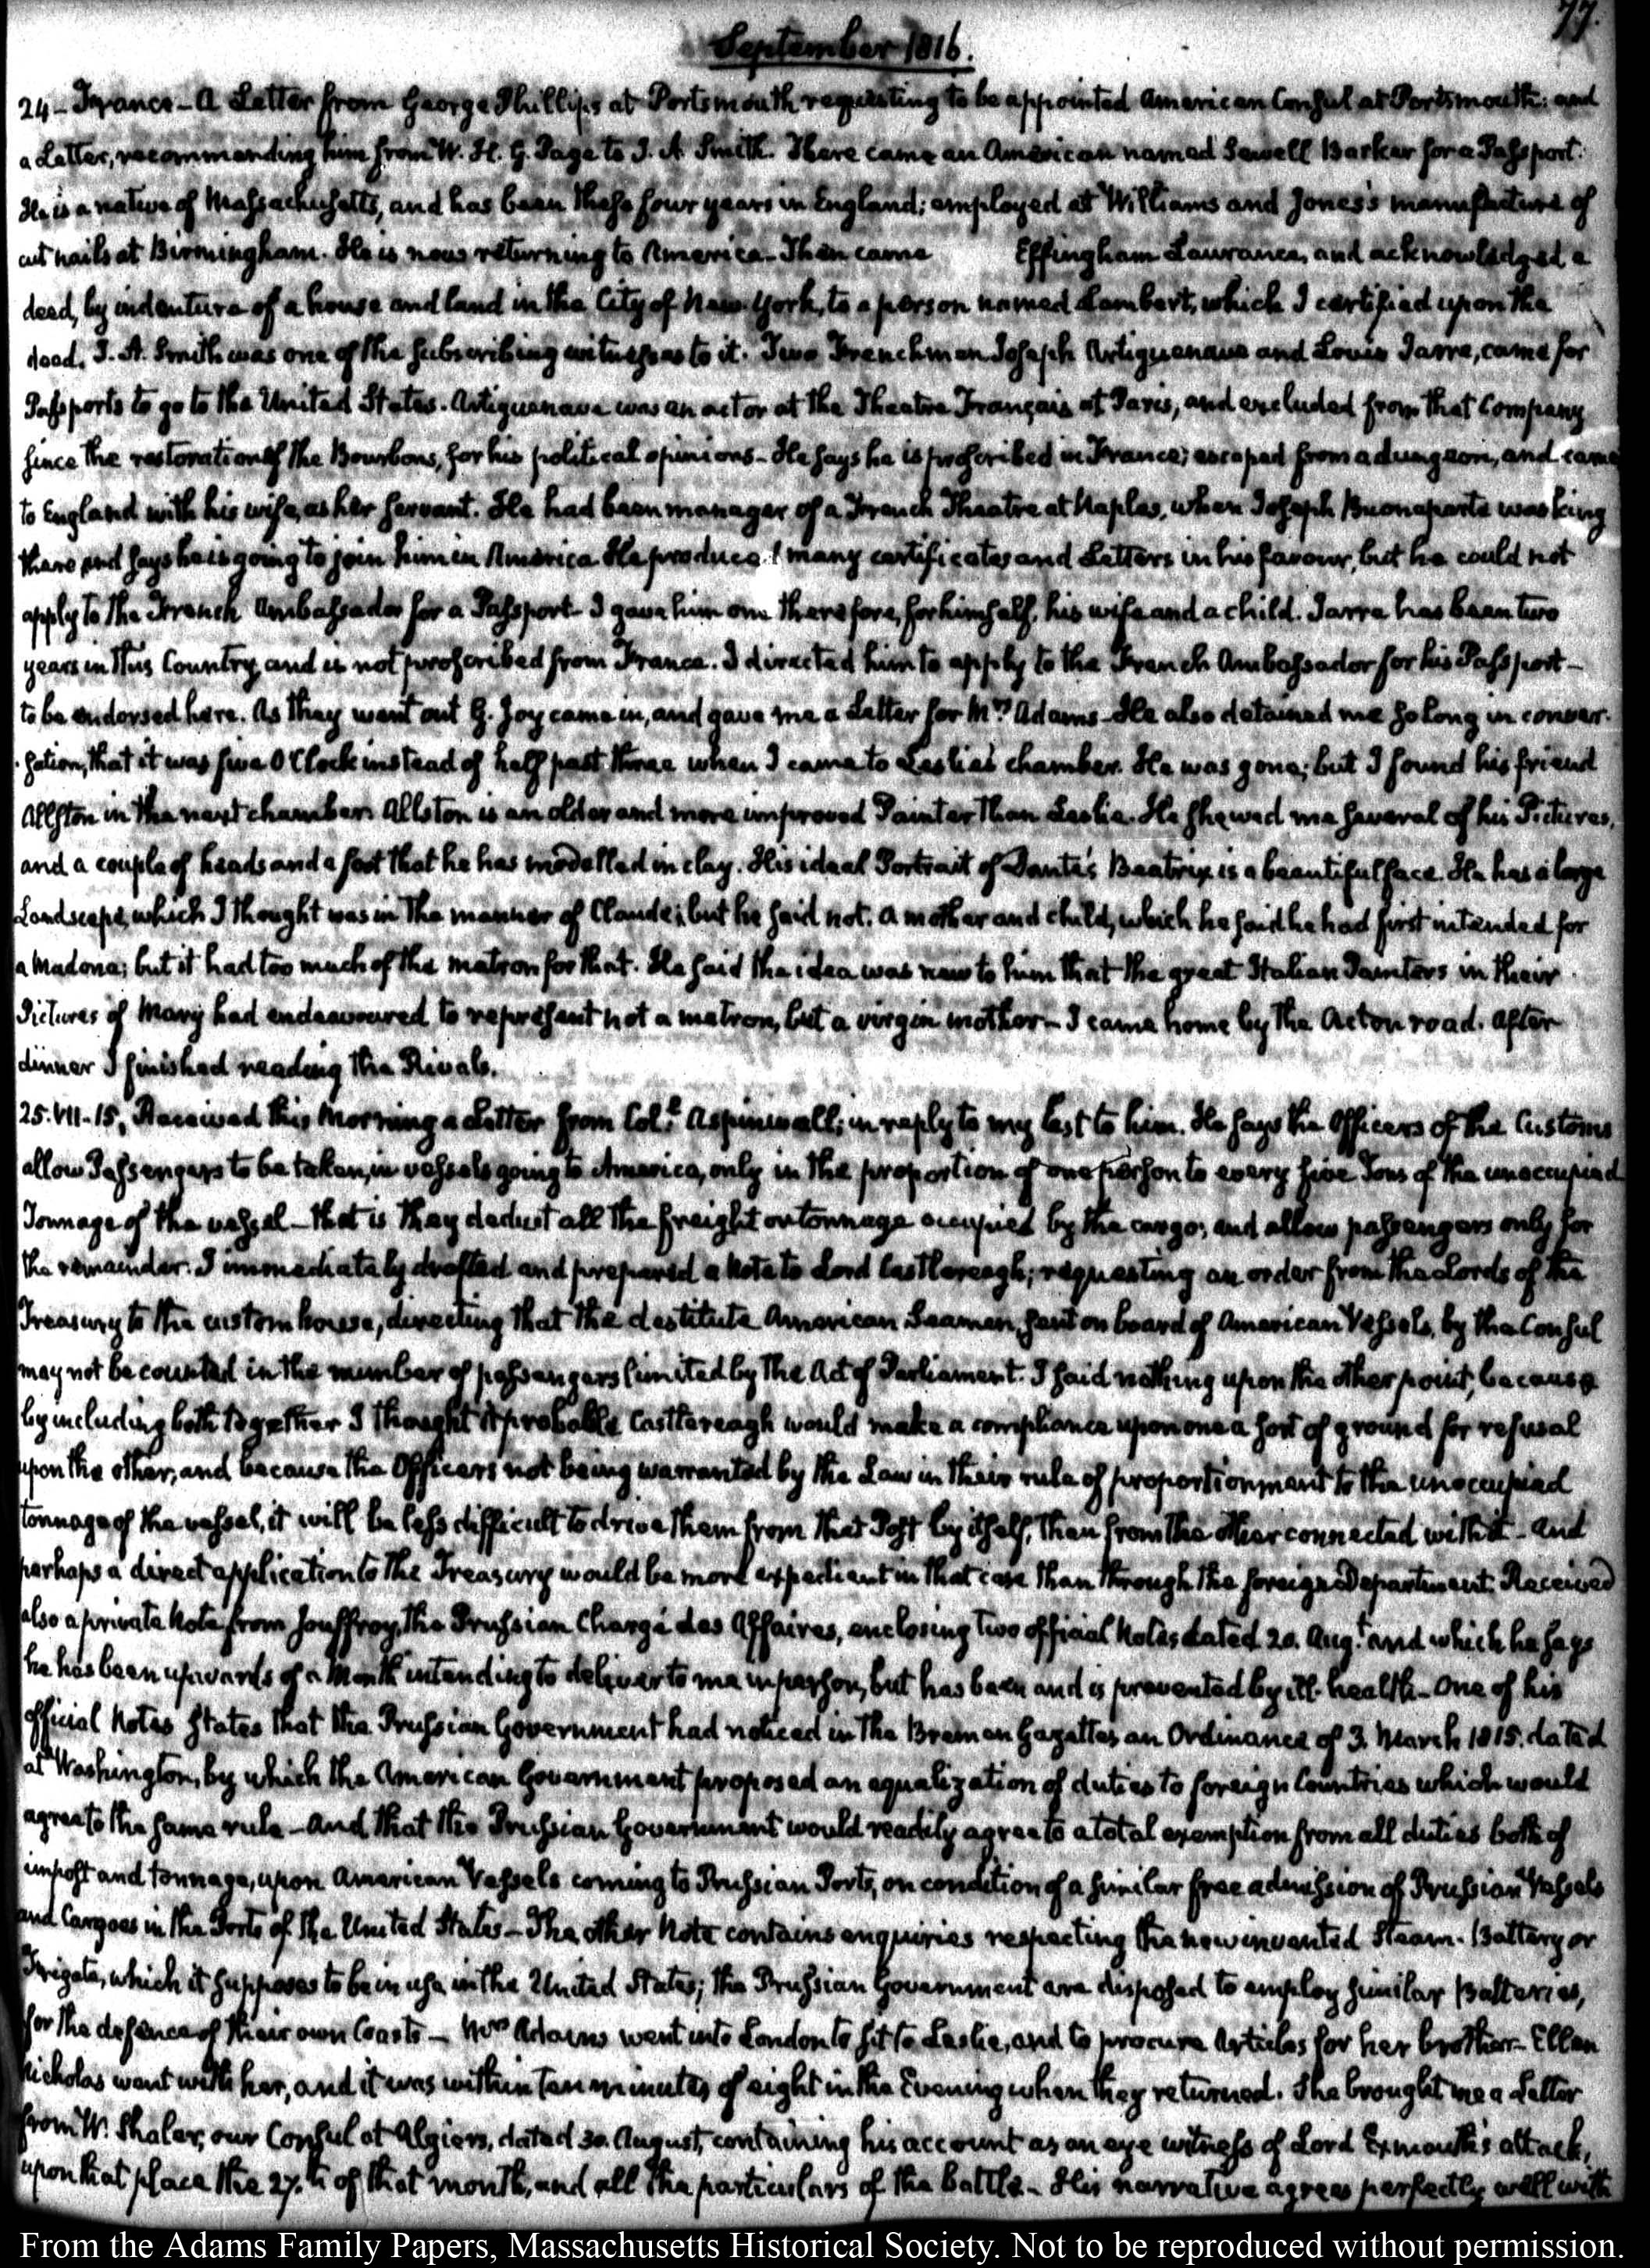 77.
September 1816.
24 - France - A Letter from George Phillips at Portsmouth requesting to be appointed American Consul at Portsmouth: and
a Letter, recommending him from W. H. G. Page to J. A. Smith. There came an American named Sewell Barker for a Passport.
He is a native of Massachusetts, and has been these four years in England; employed at Williams and Jones's manufacture of
cut nails at Birmingham. He is now returning to America. Then came Effingham Lawrance, and acknowledged a
deed, by indenture of a house and land in the City of New-York, to a person named Lambert, which I certified upon the
deed. J. A. Smith was one of the subscribing witnesses to it. Two Frenchmen Joseph Artiguenave and Louis Jarre, came for
Passports to go to the United States. Artiguenave was an actor at the Theatre Français at Paris, and excluded from that Company
since the restoration of the Bourbons, for his political opinions - He says he is proscribed in France; escaped from a dungeon, and came
to England with his wife, as her servant. He had been manager of a French Theatre at Naples, when Joseph Buonaparte was king
there and says he is going to join him in America. He produced many certificates and Letters in his favour, but he could not
apply to the French Ambassador for a Passport - I gave him one therefore, for himself, his wife and a child. Jarre has been two
years in this Country, and is not proscribed from France. I directed him to apply to the French Ambassador for his Passport -
to be endorsed here. As they went out G. Joy came in, and gave me a Letter for Mrs. Adams - He also detained me so long in conver-
-sation, that it was five O'Clock instead of half past three when I came to Leslie's chamber. He was gone; but I found his friend
Allston in the next chamber. Allston is an older and more improved Painter than Leslie. He shewed me several of his Pictures,
and a couple of heads and a foot that he has modelled in clay. His ideal Portrait of Dante's Beatrix is a beautiful face. He has a large
Landscape, which I thought was in the manner of Claude; but he said not. A mother and child, which he said he had first intended for
a Madona; but it had too much of the matron for that. He said the idea was new to him that the great Italian Painters in their
Pictures of Mary had endeavoured to represent not a matron, but a virgin mother - I came home by the Acton road. After
dinner I finished reading the Rivals.
25. VII-15. Received this Morning a Letter from Coll. Aspinwall; in reply to my last to him. He says the Officers of the Customs
allow Passengers to be taken, in vessels going to America, only in the proportion of one person to every five Tons of the unoccupied
Tonnage of the vessel - that is they deduct all the freight or tonnage occupied by the cargo; and allow passengers only for
the remainder. I immediately drafted and prepared a Note to Lord Castlereagh; requesting an order from the Lords of the
Treasury to the custom house, directing that the destitute American Seamen, sent on board of American Vessels, by the Consul
may not be counted in the number of passengers limited by the Act of Parliament. I said nothing upon the other point, because
by including both together I thought it probable Castlereagh would make a compliance upon one a sort of ground for refusal
upon the other, and because the Officers not being warranted by the Law in their rule of proportionment to the unoccupied
tonnage of the vessel, it will be less difficult to drive them from that Post by itself, than from the other connected with it - And
perhaps a direct application to the Treasury would be more expedient in that case than through the foreign Department. Received
also a private Note from Jouffroy, the Prussian Chargé des Affaires, enclosing two official Notes dated 20. Augt. and which he says
he has been upwards of a Month intending to deliver to me in person, but has been and is prevented by ill-health - One of his
official Notes states that the Prussian Government had noticed in the Bremen Gazettes an Ordinance of 3. March 1815. dated
at Washington, by which the American Government proposed an equalization of duties to foreign Countries which would
agree to the same rule - And that the Prussian Government would readily agree to a total exemption from all duties both of
impost and tonnage, upon American Vessels coming to Prussian Ports, on condition of a similar free admission of Prussian Vessels
and Cargoes in the Ports of the United States - The other Note contains enquiries respecting the new invented Steam-Battery or
Frigate, which it supposes to be in use in the United States; the Prussian Government are disposed to employ similar Batteries,
for the defence of their own Coasts - Mrs. Adams went into London to sit to Leslie, and to procure Articles for her brother - Ellen
Nicholas went with her, and it was within ten minutes of eight in the Evening when they returned. She brought me a Letter
from W. Shaler, our Consul at Algiers, dated 30. August, containing his account as an eye witness of Lord Exmouth's attack,
upon that place the 27.th of that month, and all the particulars of the battle - His narrative agrees perfectly well with
From the Adams Family Papers, Massachusetts Historical Society. Not to be reproduced without permission.